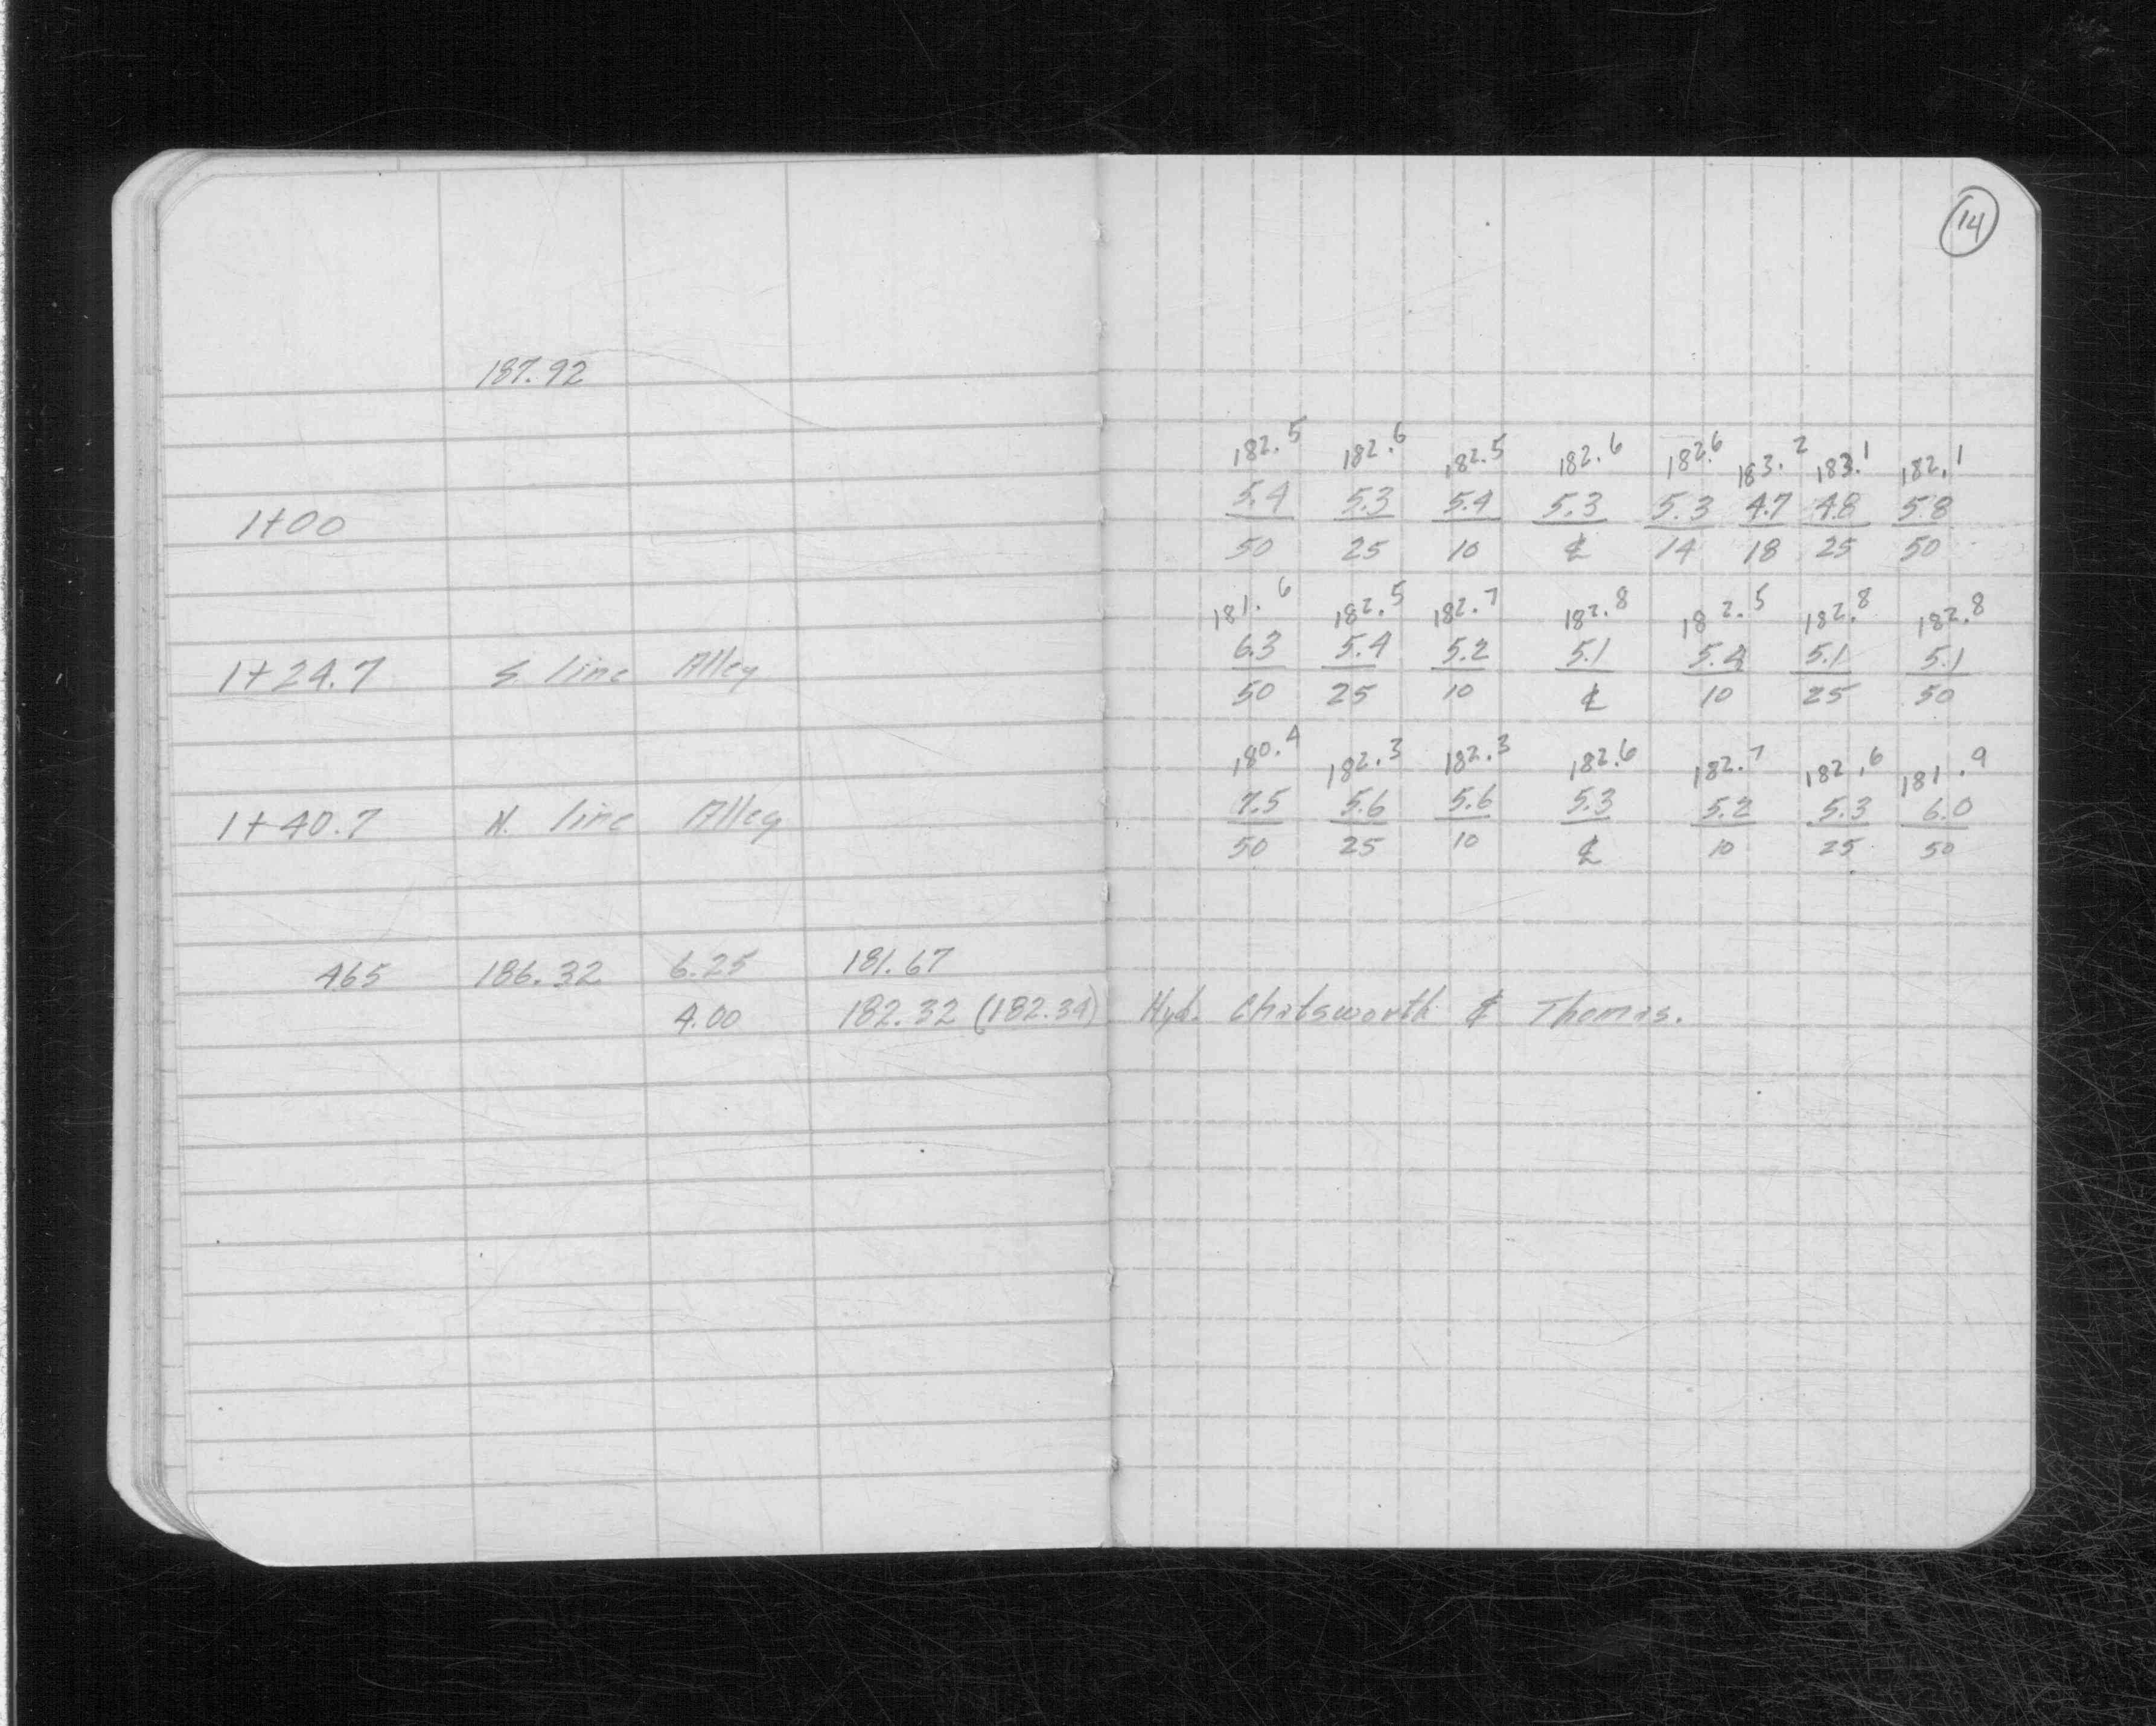 14
187.92
182.5 182.6 182.5 182.6 182.6 183.2 183.1 182.1
1+00 5.4 5.3 5.4 5.3 5.3 4.7 4.8 5.8
50 25 10 ℄ 14 18 25 50
181.6 182.5 182.7 182.8 182.5 182.8 182.8
1+24.7 S. line Alley 6.3 5.4 5.2 5.1 5.4 5.1 5.1
50 25 10 ℄ 10 25 50
180.4 182.3 182.3 182.6 182.7 182.6 181.9
1+40.7 N. line Alley 7.5 5.6 5.6 5.3 5.2 5.3 6.0
50 25 10 ℄ 10 25 50
465 186.32 6.25 181.67
4.00 182.32 (182.34) Hyd. Chatsworth & Thomas.